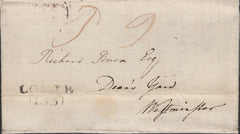 P 9
Richard Burn Esq
Dean's Yard
LOUTH
(155)
Westminster